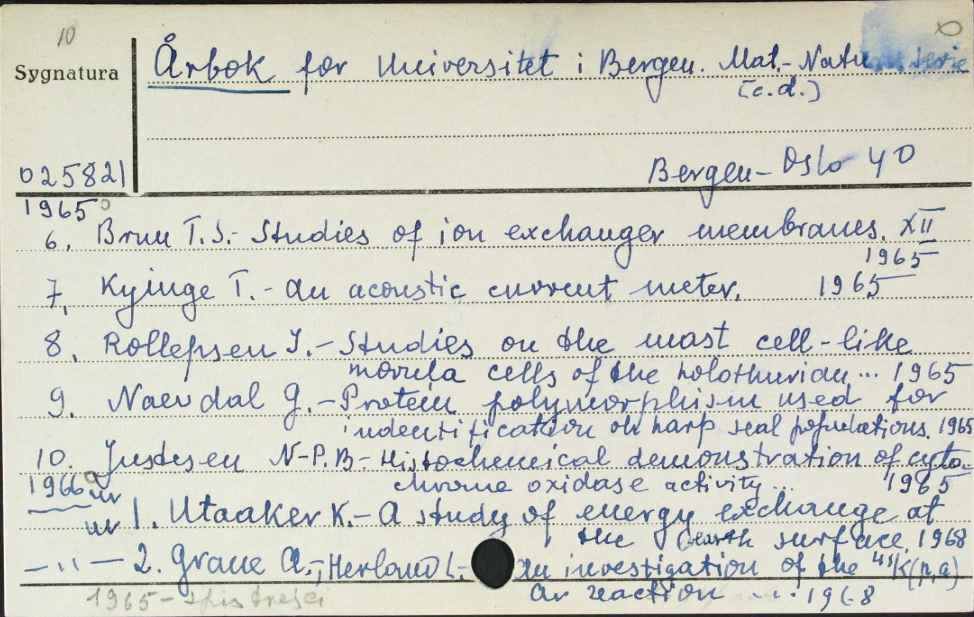 10
Sygnatura
Årbok for Universitet i Bergen. Mat.-Natu serie
[c.d.]
025821
Bergen-Oslo 40
1965
6. Brun T.S.- Studies of ion exchanger membranes. XII
1965
7. Kyinge T.- An acoustic current meter. 1965
8. Rollefsen I.- Studies on the mast cell-like
morula cells of the holothurian ... 1965
9. Naevdal G.- Protein polymorphism used for
indentification oh harp seal populations. 1965
10. Justesen N-P.B- Histochemical demonstration of cyto-
chrome oxidase activity... 1965
1966 nr
nr 1. Utaaker K.- A study of energy exchange at
the earth surface. 1968
— " — 2. Graue A., Herland L.- An investigation of the 41K(p,α)
Ar reaction .... 1968
1965 - spis treści